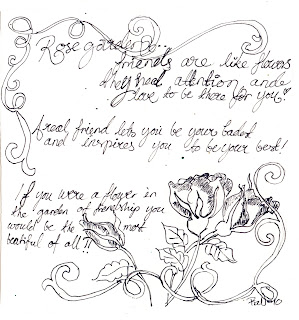 Rose garden...
friends are like flowers
they need attention and
love to be there for you
A real friend lets you be your badest
and inspires you to be your best!
If you were a flower in
the garden of friendship you
would be the most
beautiful of all!!